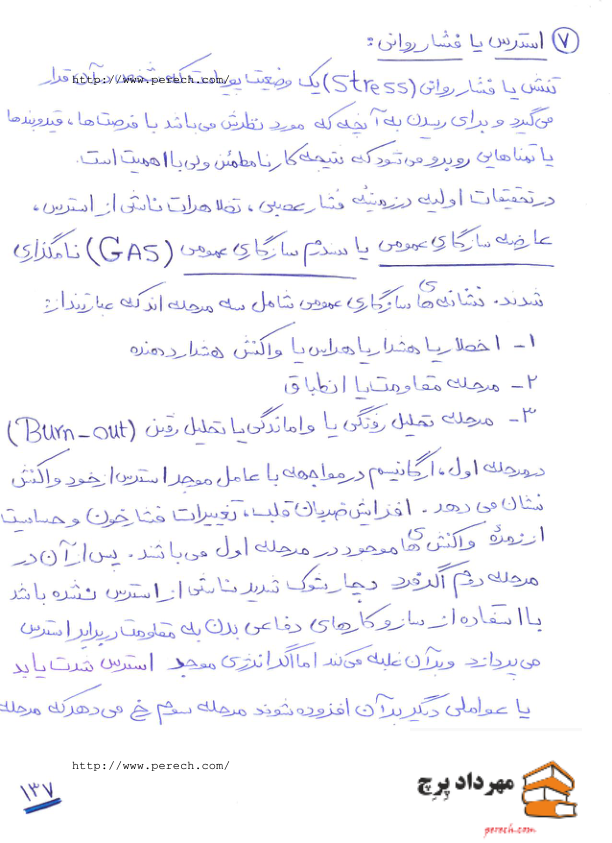 ۷) استرس یا فشار روانی:
http://www.perech.com/
تنش یا فشار روانی (Stress) یک وضعیت قرار
می‌گیرد و برای رسیدن به آنچه که مورد نظرش می‌باشد با فرصت‌ها، قیدوبندها
یا تمناهایی روبرو می‌شود که نتیجه کار نامطمئن ولی با اهمیت است.
در تحقیقات اولیه در زمینه فشار عصبی، تظاهرات ناشی از استرس،
عارضه سازگاری عمومی یا سندرم سازگاری عمومی (GAS) نامگذاری
شدند. نشانه‌های سازگاری عمومی شامل سه مرحله اند که عبارتند از:
۱- اخطار یا هشدار یا هراس یا واکنش هشدار دهنده
۲- مرحله مقاومت یا انطباق
۳- مرحله تحلیل رفتگی یا واماندگی یا تحلیل رفتن (Burn-out)
در مرحله اول، ارگانیسم در مواجهه با عامل موجد استرس از خود واکنش
نشان می دهد. افزایش ضربان قلب، تغییرات فشار خون و حساسیت
از زمرهٔ واکنش‌های موجود در مرحله اول می‌باشند. پس از آن در
مرحله دوم اگر فرد دچار شوک شدید ناشی از استرس نشده باشد
با استفاده از سازوکارهای دفاعی بدن به مقاومت در برابر استرس
می‌پردازد و بر آن غلبه می‌کند اما اگر انرژی موجد استرس شدت یابد
یا عواملی دیگر بر آن افزوده شوند مرحله سوم رخ می‌دهد که مرحله
http://www.perech.com/
۱۳۷
مهرداد پرچ
perech.com